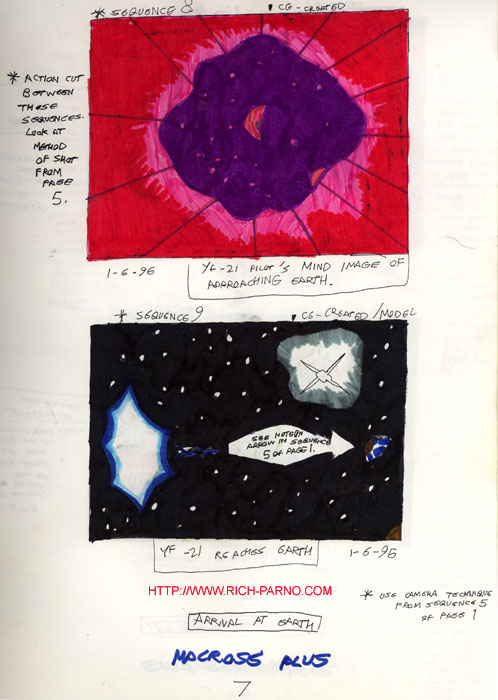 * SEQUENCE 8
• CG-CREATED
* ACTION CUT
BETWEEN
THESE
SEQUENCES.
LOOK AT
METHOD
OF SHOT
FROM
PAGE
5.
1-6-96
YF-21 PILOT'S MIND IMAGE OF
APPROACHING EARTH.
* SEQUENCE 9
• CG-CREATED/MODEL
SEE NOTE ON
ARROW IN SEQUENCE
5 OF PAGE 1.
YF-21 REACHES EARTH
1-6-96
HTTP://WWW.RICH-PARNO.COM
* USE CAMERA TECHNIQUE
FROM SEQUENCE 5
OF PAGE 1
ARRIVAL AT EARTH
MACROSS PLUS
7